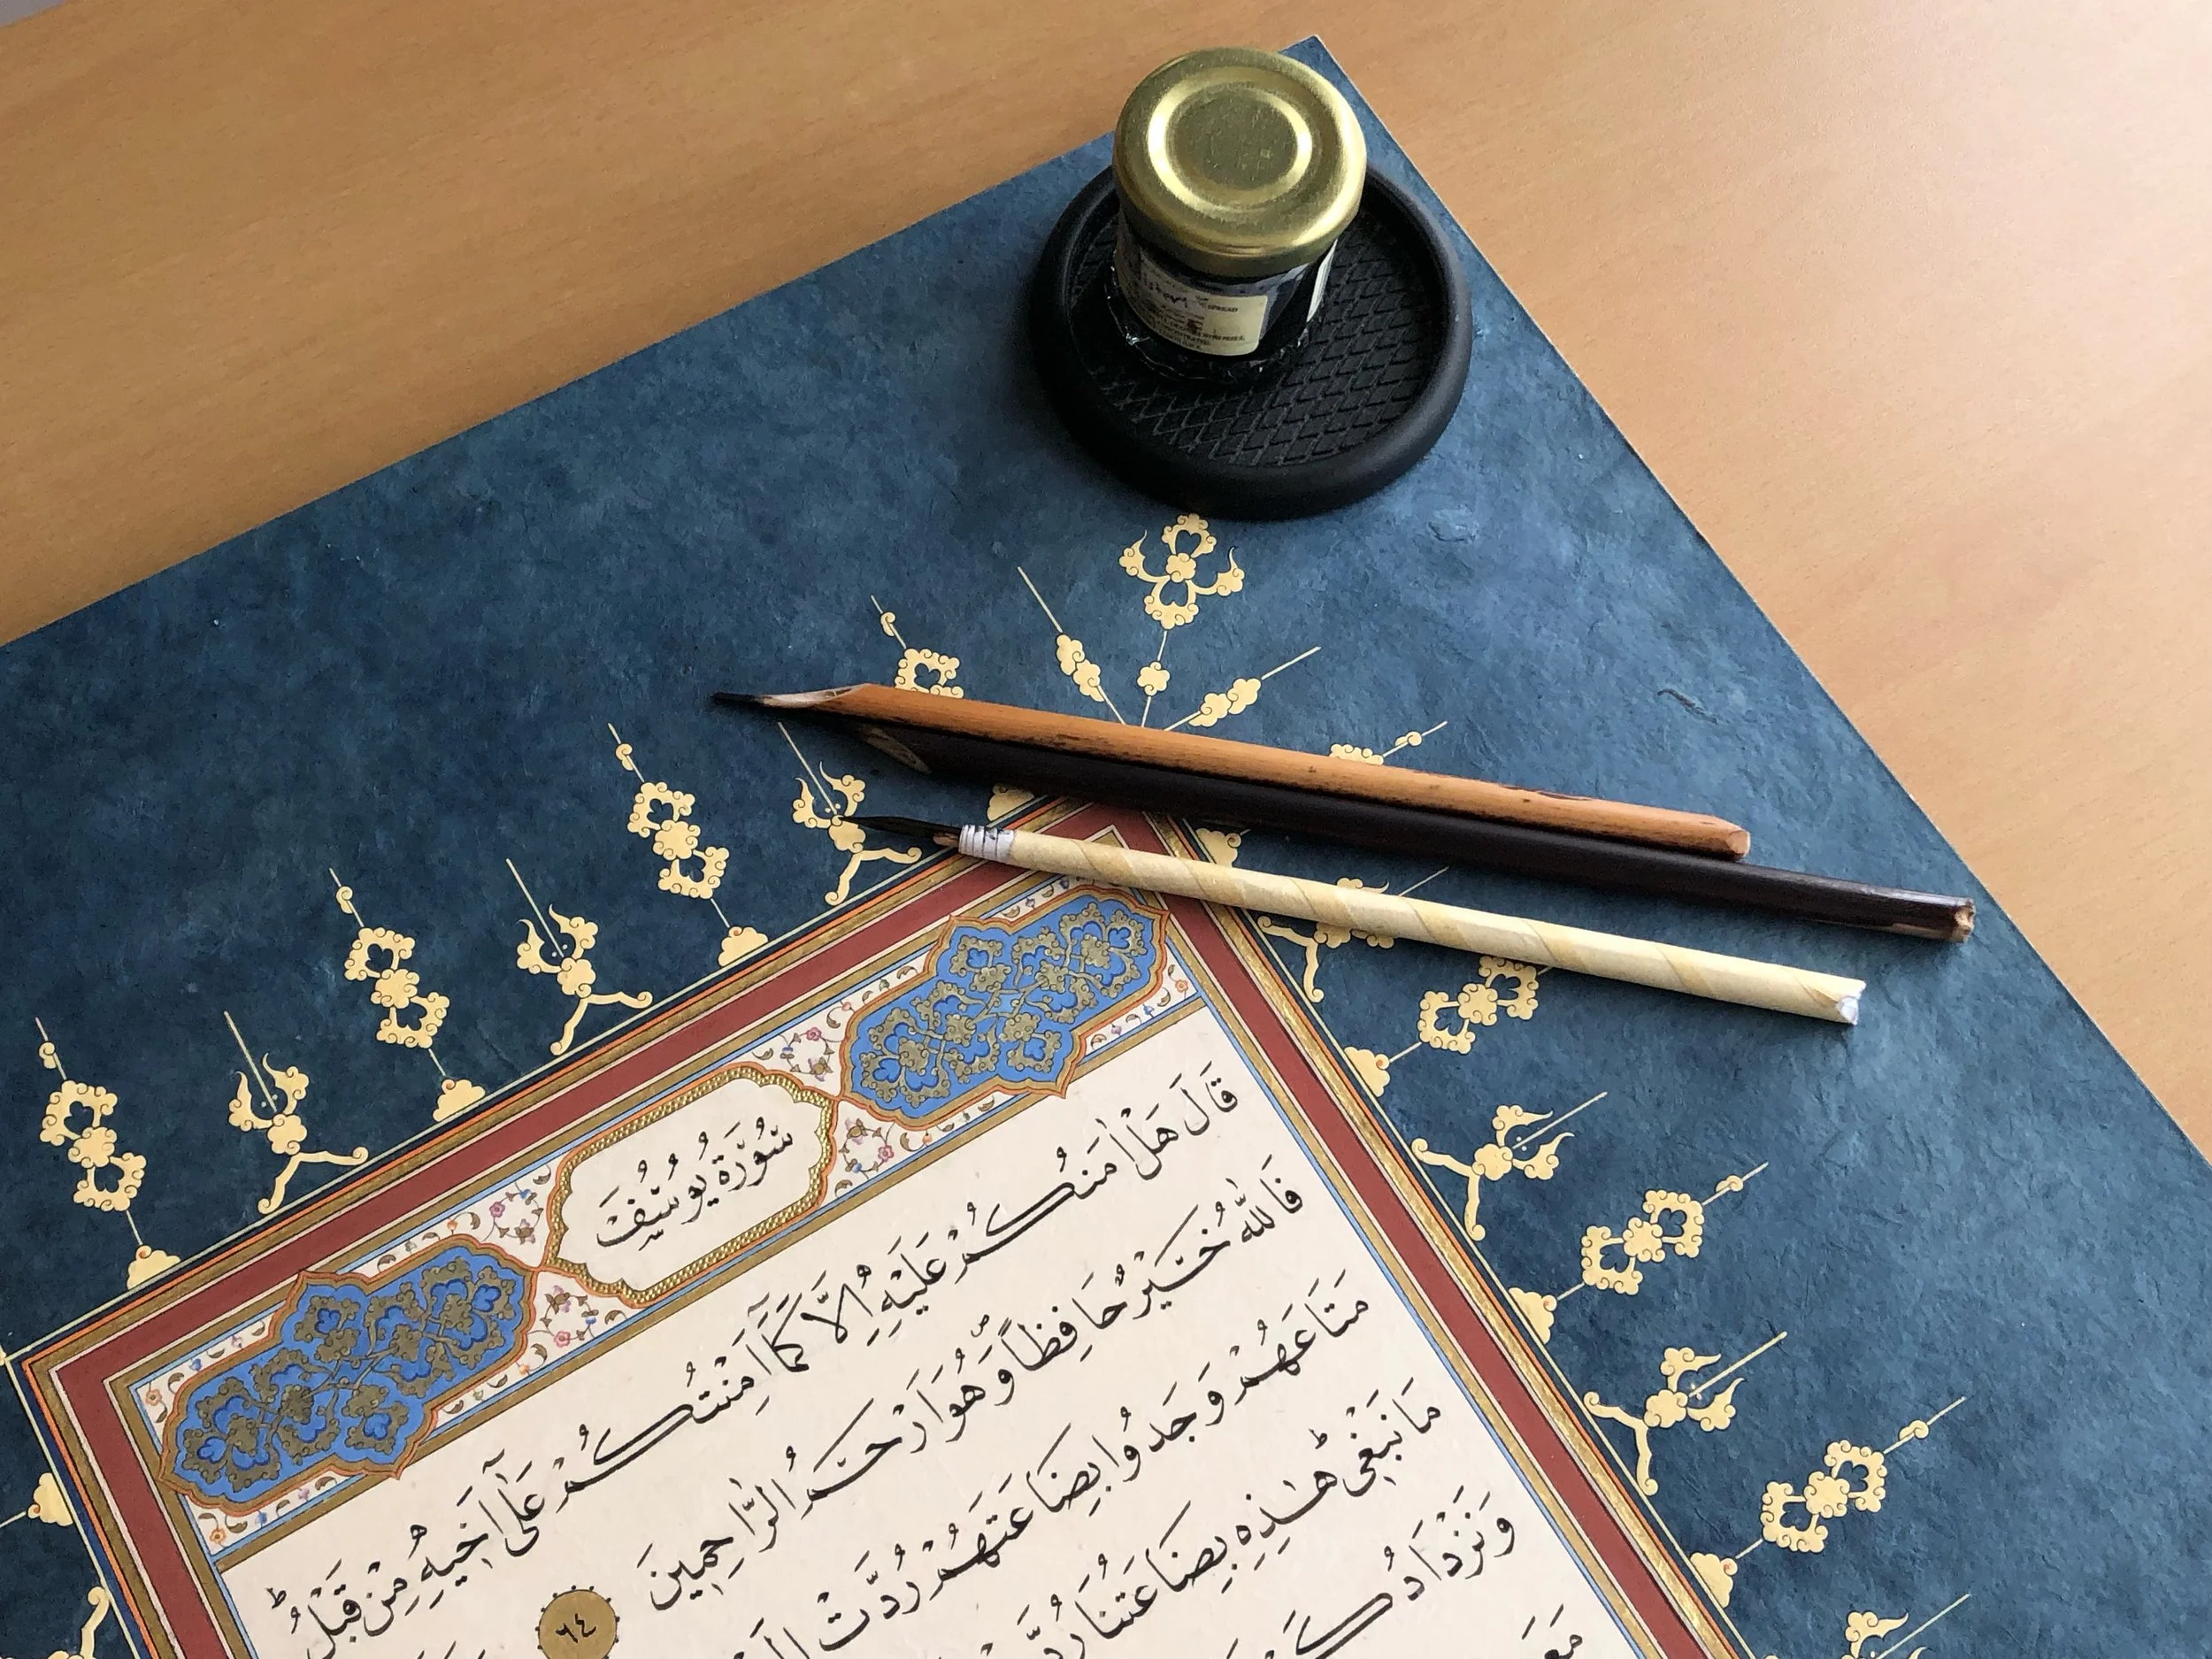 SPREAD
سُورَةُ يُوسُفَ
قَالَ هَلْ اٰمَنُكُمْ عَلَيْهِ اِلَّا كَمَٓا اَمِنْتُكُمْ عَلٰٓى اَخ۪يهِ مِنْ قَبْلُؕ
فَاللّٰهُ خَيْرٌ حَافِظًاۖ وَهُوَ اَرْحَمُ الرَّاحِم۪ينَ ٦٤
مَتَاعَهُمْ وَجَدُوا بِضَاعَتَهُمْ رُدَّتْ
مَا نَبْغ۪ىؕ هٰذِه۪ بِضَاعَتُنَا
وَنَزْدَادُ